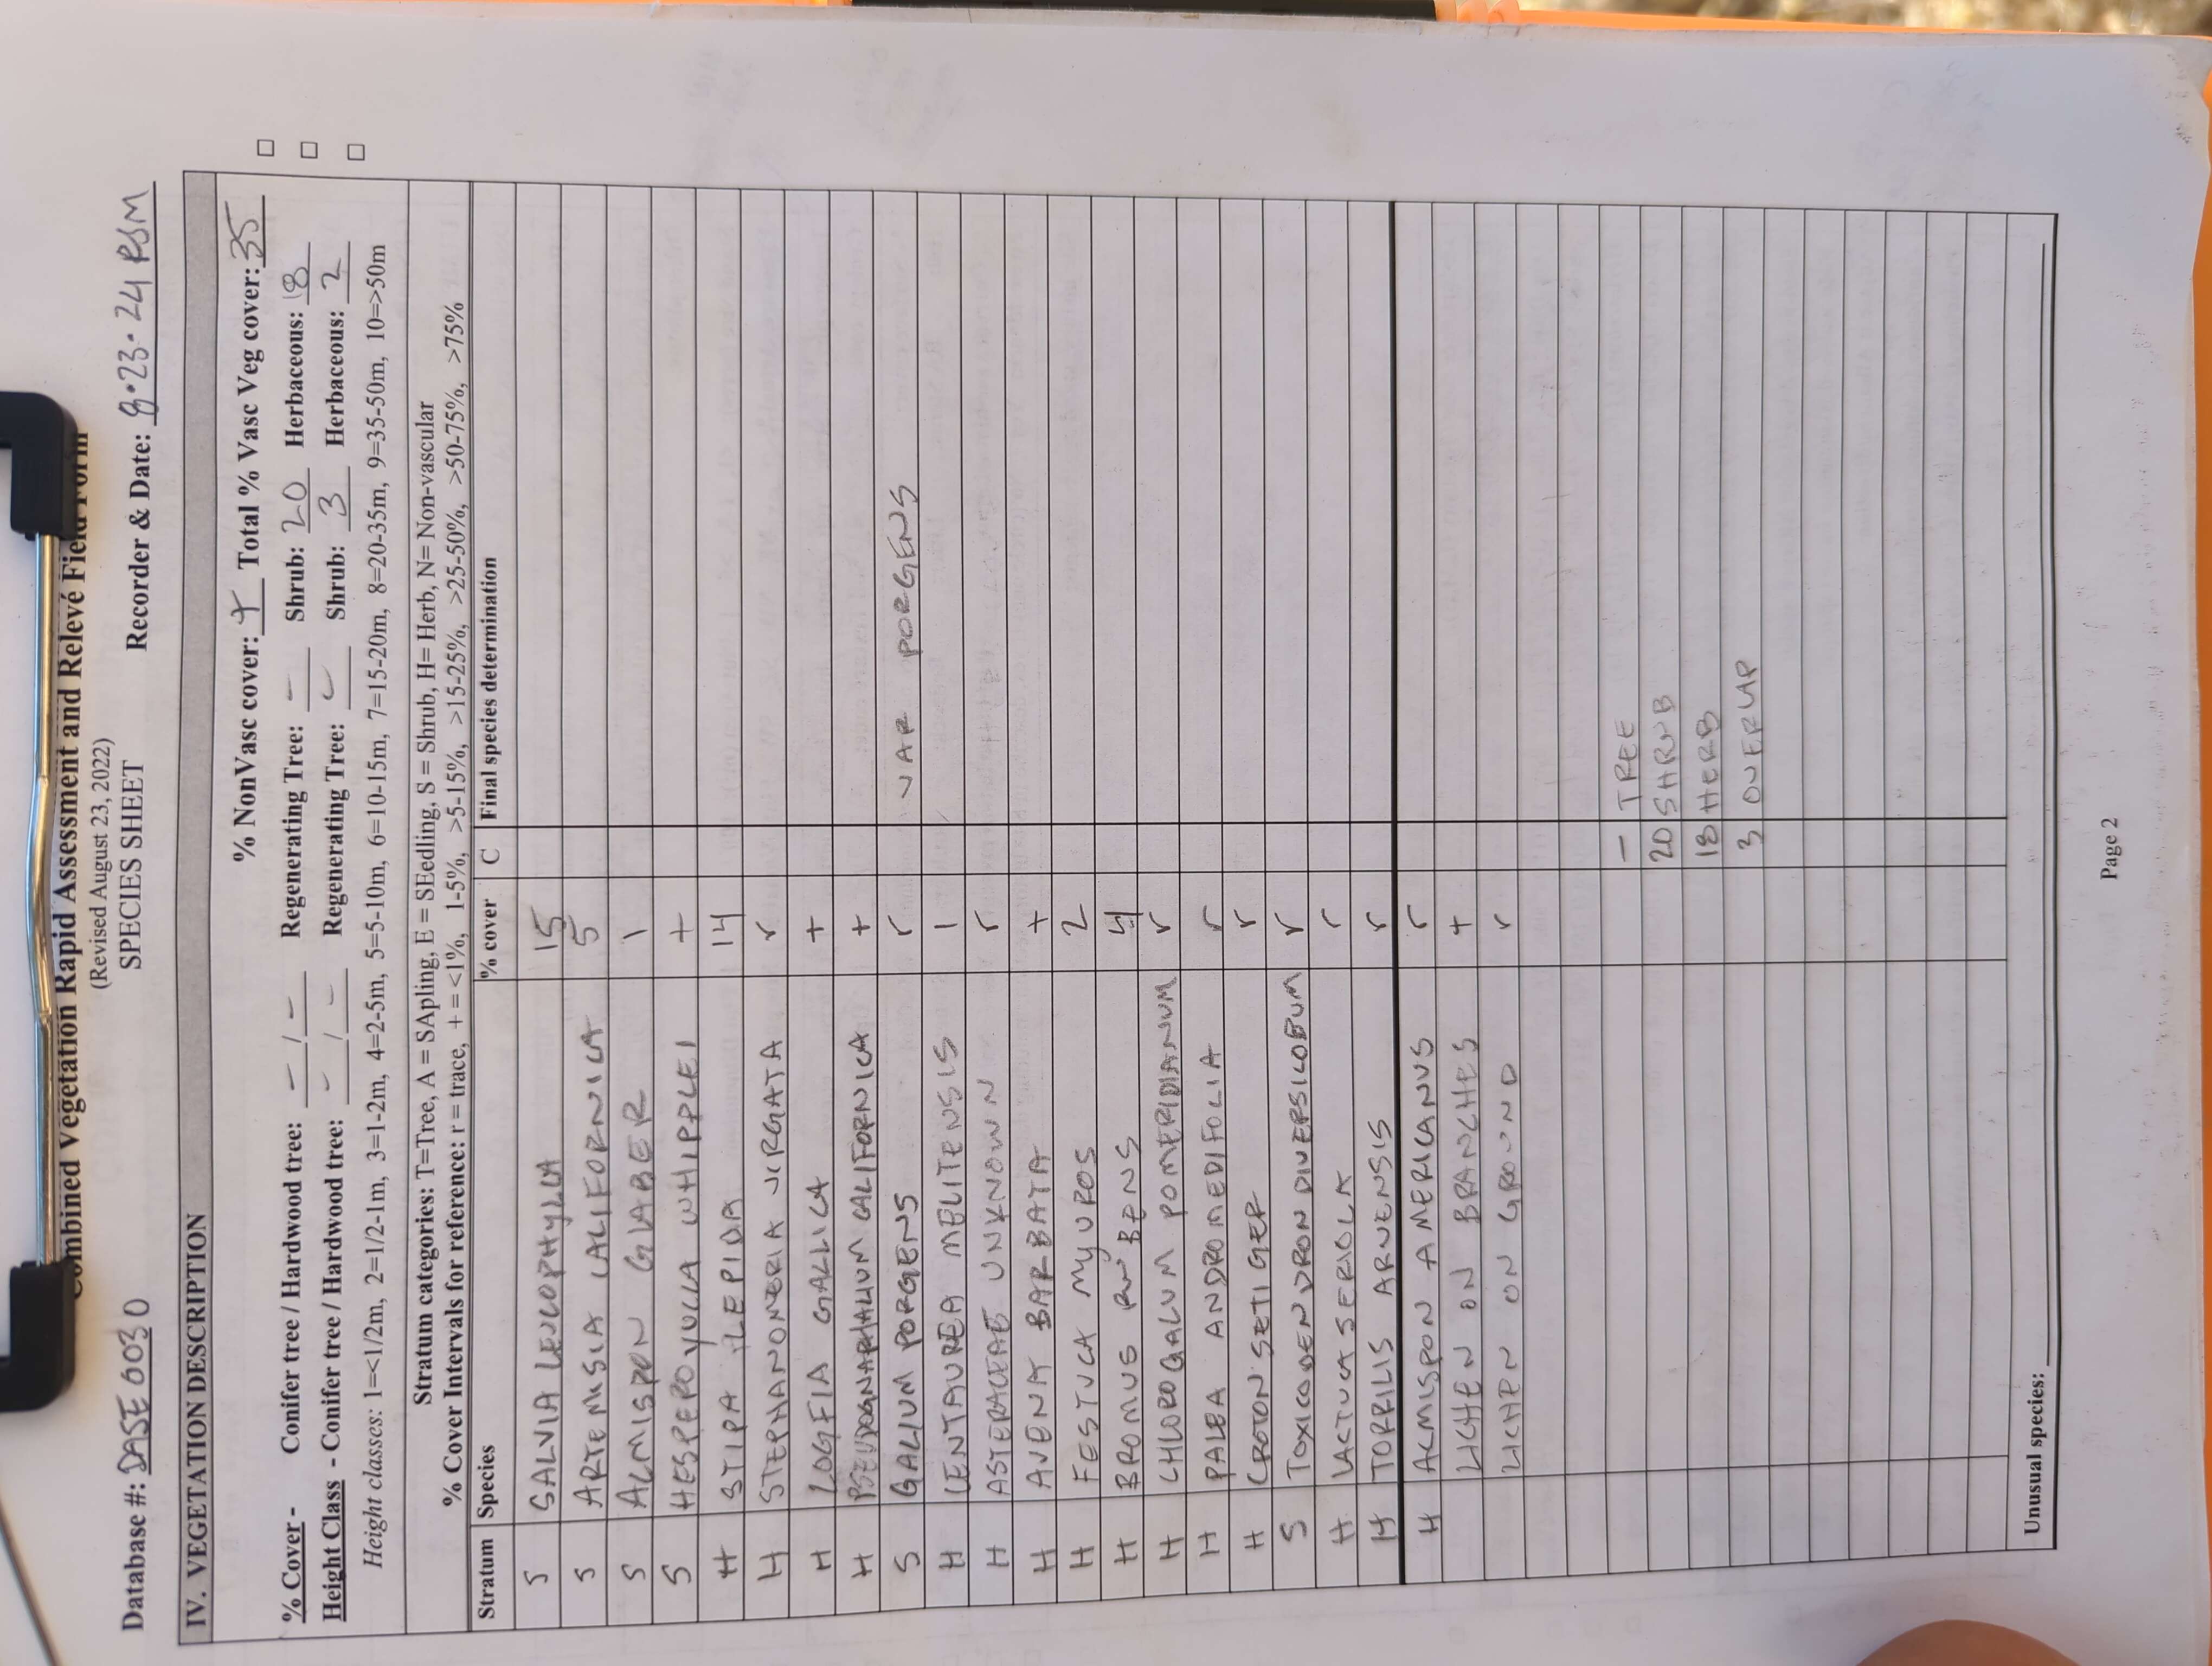 Combined Vegetation Rapid Assessment and Relevé Field Form
(Revised August 23, 2022)
Database #: DASE0030 SPECIES SHEET Recorder & Date: 8·23·24 RSM
IV. VEGETATION DESCRIPTION
% NonVasc cover: + Total % Vasc Veg cover: 35
% Cover - Conifer tree / Hardwood tree: - / - Regenerating Tree: - Shrub: 20 Herbaceous: 18
Height Class - Conifer tree / Hardwood tree: - / - Regenerating Tree: - Shrub: 3 Herbaceous: 2
Height classes: 1=<1/2m, 2=1/2-1m, 3=1-2m, 4=2-5m, 5=5-10m, 6=10-15m, 7=15-20m, 8=20-35m, 9=35-50m, 10=>50m
Stratum categories: T=Tree, A = SApling, E = SEedling, S = Shrub, H= Herb, N= Non-vascular
% Cover Intervals for reference: r = trace, + = <1%, 1-5%, >5-15%, >15-25%, >25-50%, >50-75%, >75%
Stratum Species % cover C Final species determination
S SALVIA LEUCOPHYLLA 15
S ARTEMISIA CALIFORNICA 5
S ACMISPON GLABER 1
S HESPEROYUCCA WHIPPLEI +
H STIPA LEPIDA 14
H STEPHANOMERIA VIRGATA r
H LOGFIA GALLICA +
H PSEUDOGNAPHALIUM CALIFORNICA +
S GALIUM PORGENS r VAR PORGENS
H CENTAUREA MELITENSIS 1
H ASTERACEAE UNKNOWN r
H AVENA BARBATA +
H FESTUCA MYUROS 2
H BROMUS RUBENS 4
H CHLOROGALUM POMERIDIANUM r
H PALEA ANDROMEDIFOLIA r
H CROTON SETIGER r
S TOXICODENDRON DIVERSILOBUM r
H LACTUCA SERIOLA r
H TORRILIS ARVENSIS r
H ACMISPON AMERICANUS r
LICHEN ON BRANCHES +
LICHEN ON GROUND r
- TREE
20 SHRUB
18 HERB
3 OVERLAP
Unusual species:
Page 2